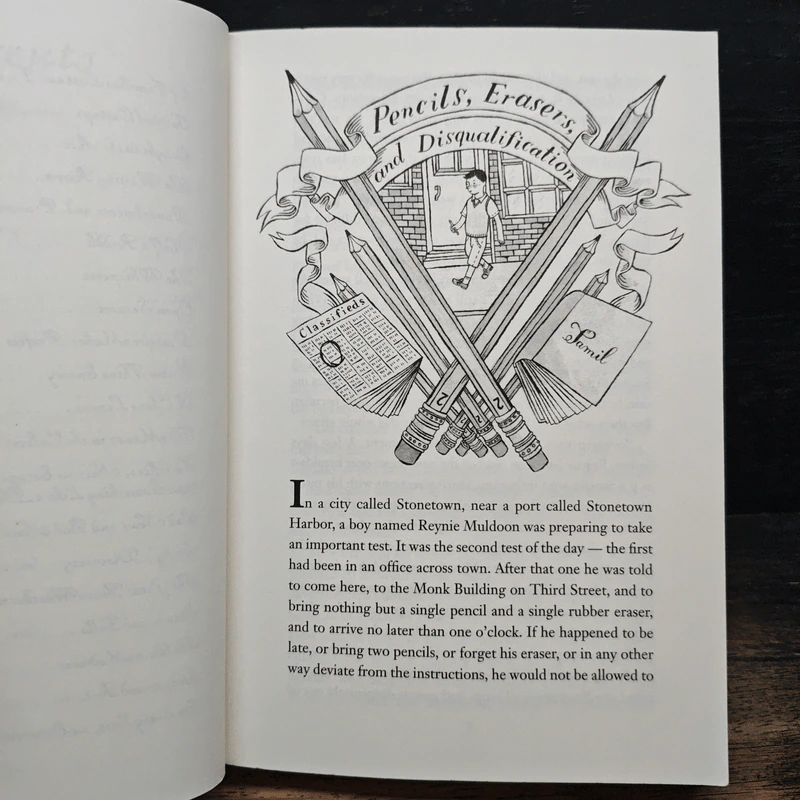 Pencils, Erasers,
and Disqualification
Classifieds
Tamil
2
2
In a city called Stonetown, near a port called Stonetown
Harbor, a boy named Reynie Muldoon was preparing to take
an important test. It was the second test of the day — the first
had been in an office across town. After that one he was told
to come here, to the Monk Building on Third Street, and to
bring nothing but a single pencil and a single rubber eraser,
and to arrive no later than one o'clock. If he happened to be
late, or bring two pencils, or forget his eraser, or in any other
way deviate from the instructions, he would not be allowed to